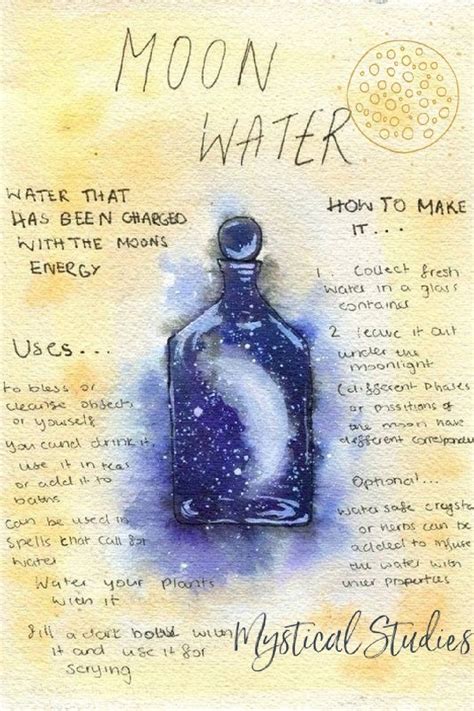 MOON
WATER
WATER THAT
HAS BEEN CHARGED
WITH THE MOONS
ENERGY
Uses...
to bless or
cleanse objects
or yourself
you cand drink it,
use it in teas
or add it to
baths
can be used in
spells that call for
water
Water your plants
with it
fill a dark bottle with
it and use it for
scrying
HOW TO MAKE
IT...
1. Collect fresh
water in a glass
container
2 leave it out
under the
moonlight
(different phases
or possitions of
the moon have
different correspond
Optional...
water safe crystals
or herbs can be
added to infuse
the water with
Properties
Mystical Studies